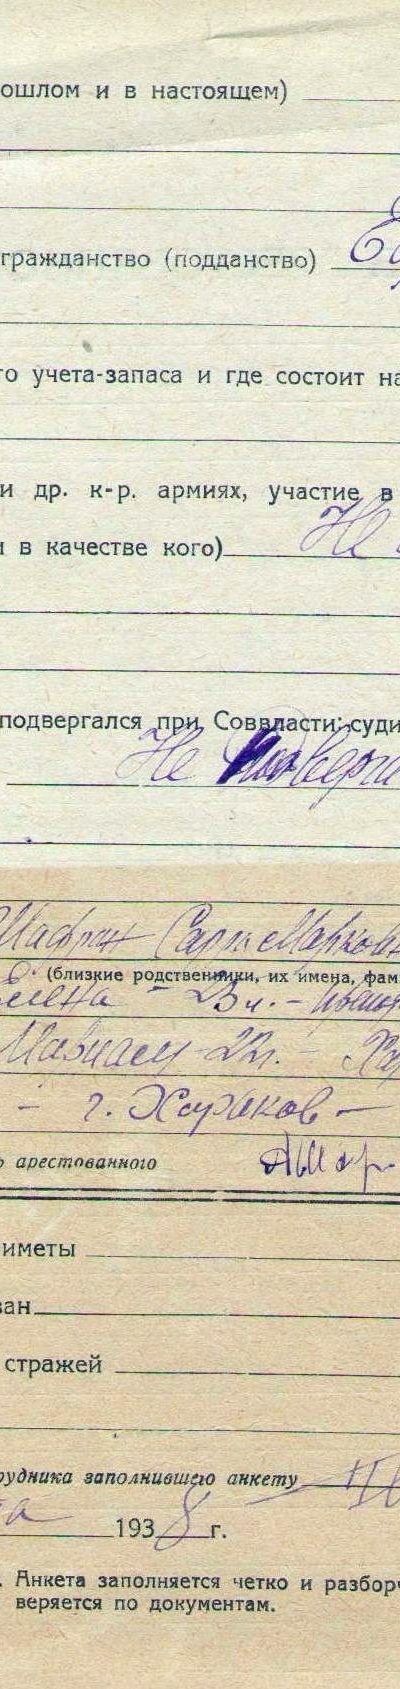 ошлом и в настоящем)
гражданство (подданство)
го учета-запаса и где состоит на
и др. к-р. армиях, участие в
и в качестве кого) Не
подвергался при Соввласти: суди
Не
Шафран Сара Марковн
(близкие родственники, их имена, фам
Елена - 23 г. -
22 г. - Хар
- г. Харьков -
ь арестованного
иметы
ван
стражей
рудника заполнившего анкету
1938 г.
. Анкета заполняется четко и разборч
веряется по документам.